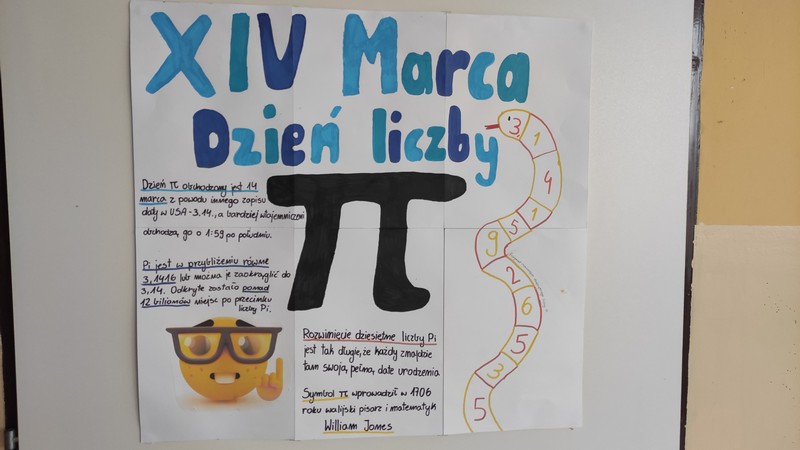 XIV Marca
Dzień liczby
π
Dzień π obchodzony jest 14
marca z powodu innego zapisu
daty w USA - 3.14., a bardziej wtajemniczeni
obchodzą, go o 1:59 po południu.
Pi jest w przybliżeniu równe
3,1416 lub można je zaokrąglić do
3,14. Odkryte zostało ponad
12 bilionów miejsc po przecinku
liczby Pi.
Rozwinięcie dziesiętne liczby Pi
jest tak długie, że każdy znajdzie
tam swoją, pełną, datę urodzenia
Symbol π wprowadził w 1706
roku walijski pisarz i matematyk
William Jones
3,
1
4
1
5
9
2
6
5
3
5